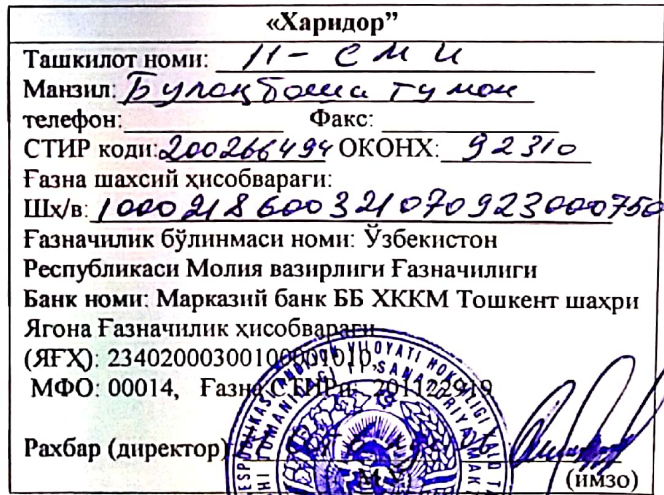 «Харидор”
Ташкилот номи: 11- СМИ
Манзил: Булоқбоши тумон
телефон: Факс:
СТИР коди: 200266494 ОКОНХ: 92310
Ғазна шахсий ҳисобварағи:
Шх/в: 1000218600321070923000750
Ғазначилик бўлинмаси номи: Ўзбекистон
Республикаси Молия вазирлиги Ғазначилиги
Банк номи: Марказий банк ББ ХККМ Тошкент шаҳри
Ягона Ғазначилик ҳисобварағи
(ЯҒҲ): 23402000300100001010,
МФО: 00014, Ғазна СТИРи: 201122919
Рахбар (директор)
М.Ў. (имзо)